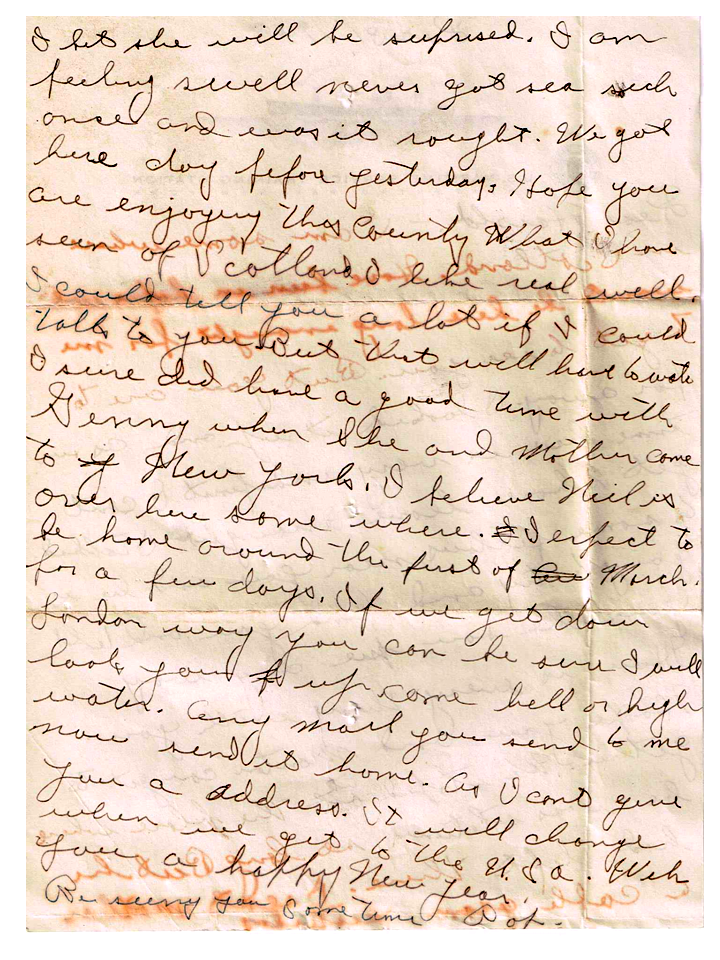 I bet she will be suprised. I am
feeling swell never got sea sick
once and was it rought. We got
here day fefore yesterday. Hope you
are enjoying this County What I have
seen of Scotland I like real well.
I could tell you a lot if I could
talk to you. But that will have to wate
I sure did have a good time with
Genny when She and Mother come
to New York. I believe Neil is
over here some where. I expect to
be home around the first of March.
for a few days. If we get down
London way you can be sure I will
look you up come hell or high
water. Any mail you send to me
now send it home. As I cant give
you a address. It will change
when we get to the U.S.A. Wish
you a happy New Year.
Be seeing you some time Pop.